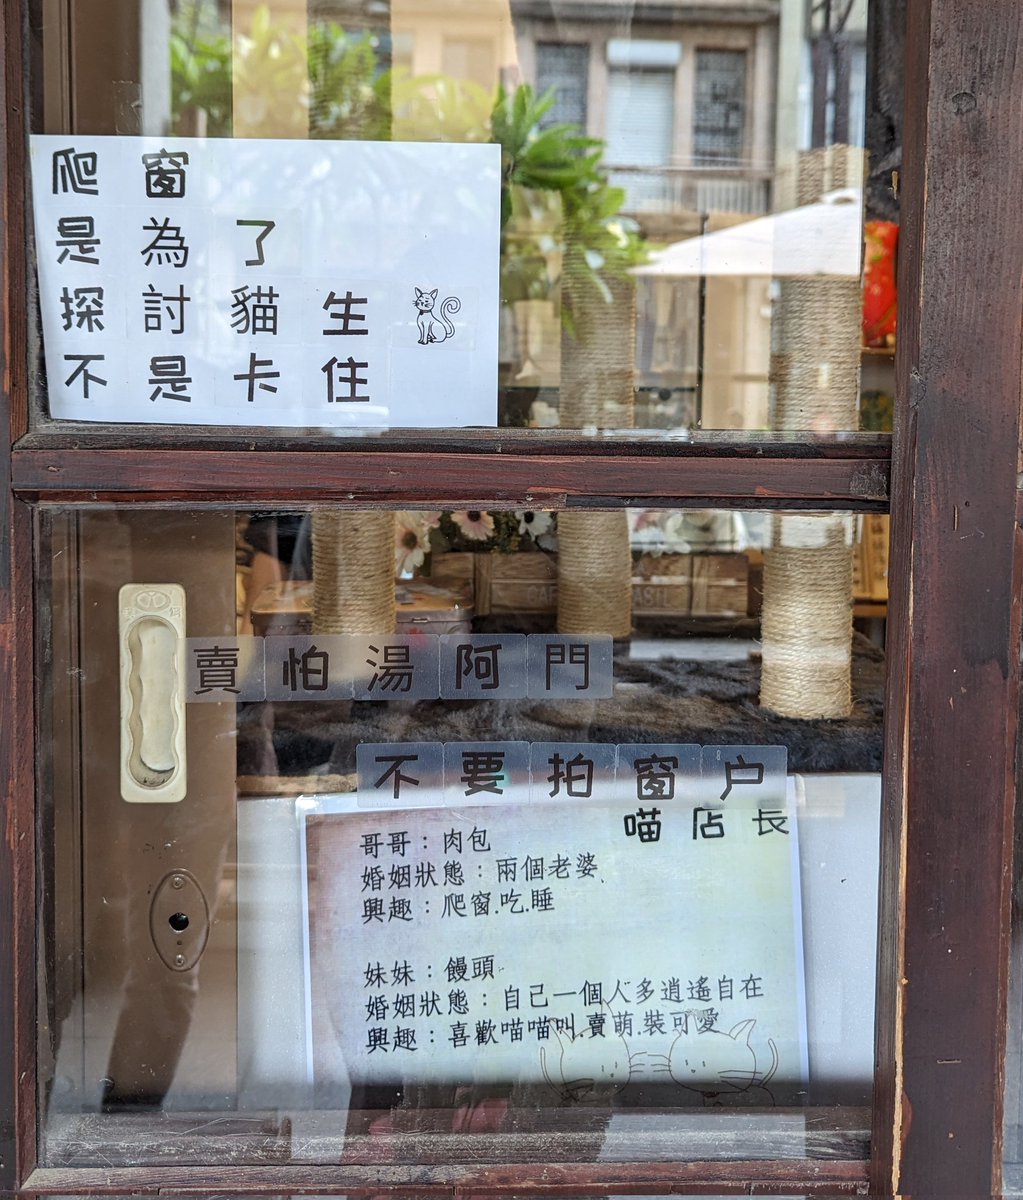 爬窗
是為了
探討貓生
不是卡住
賣怕湯阿門
不要拍窗户
喵店長
哥哥：肉包
婚姻狀態：兩個老婆
興趣：爬窗.吃.睡
妹妹：饅頭
婚姻狀態：自己一個人多逍遙自在
興趣：喜歡喵喵叫.賣萌.裝可愛